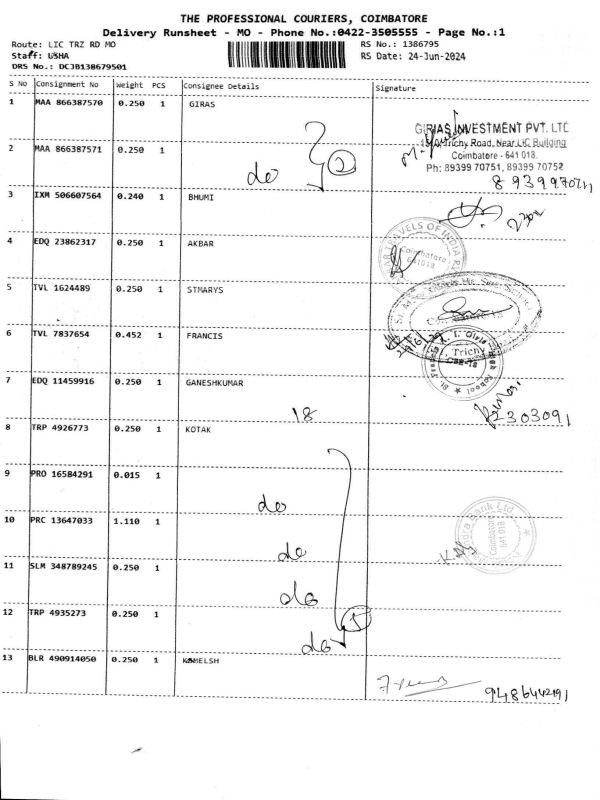 THE PROFESSIONAL COURIERS, COIMBATORE
Delivery Runsheet - MO - Phone No.:0422-3505555 - Page No.:1
Route: LIC TRZ RD MO RS No.: 1386795
Staff: USHA RS Date: 24-Jun-2024
DRS No.: DCJB138679501
S No Consignment No Weight PCS Consignee Details Signature
1 MAA 866387570 0.250 1 GIRAS
GIRIAS INVESTMENT PVT. LTD
Trichy Road, Near LIC Building
Coimbatore - 641 018.
Ph: 89399 70751, 89399 70752
2 MAA 866387571 0.250 1
do 2
3 IXM 506607564 0.240 1 BHUMI
4 EDQ 23862317 0.250 1 AKBAR
TRAVELS OF INDIA
Coimbatore
641018
5 TVL 1624489 0.250 1 STMARYS
6 TVL 7837654 0.452 1 FRANCIS
Trichy
7 EDQ 11459916 0.250 1 GANESHKUMAR
18
2303091
8 TRP 4926773 0.250 1 KOTAK
9 PRO 16584291 0.015 1
do
10 PRC 13647033 1.110 1
Bank Ltd
Coimbatore
641 018
do
11 SLM 348789245 0.250 1
do
12 TRP 4935273 0.250 1
do 5
13 BLR 490914050 0.250 1 KAMELSH
9486442191